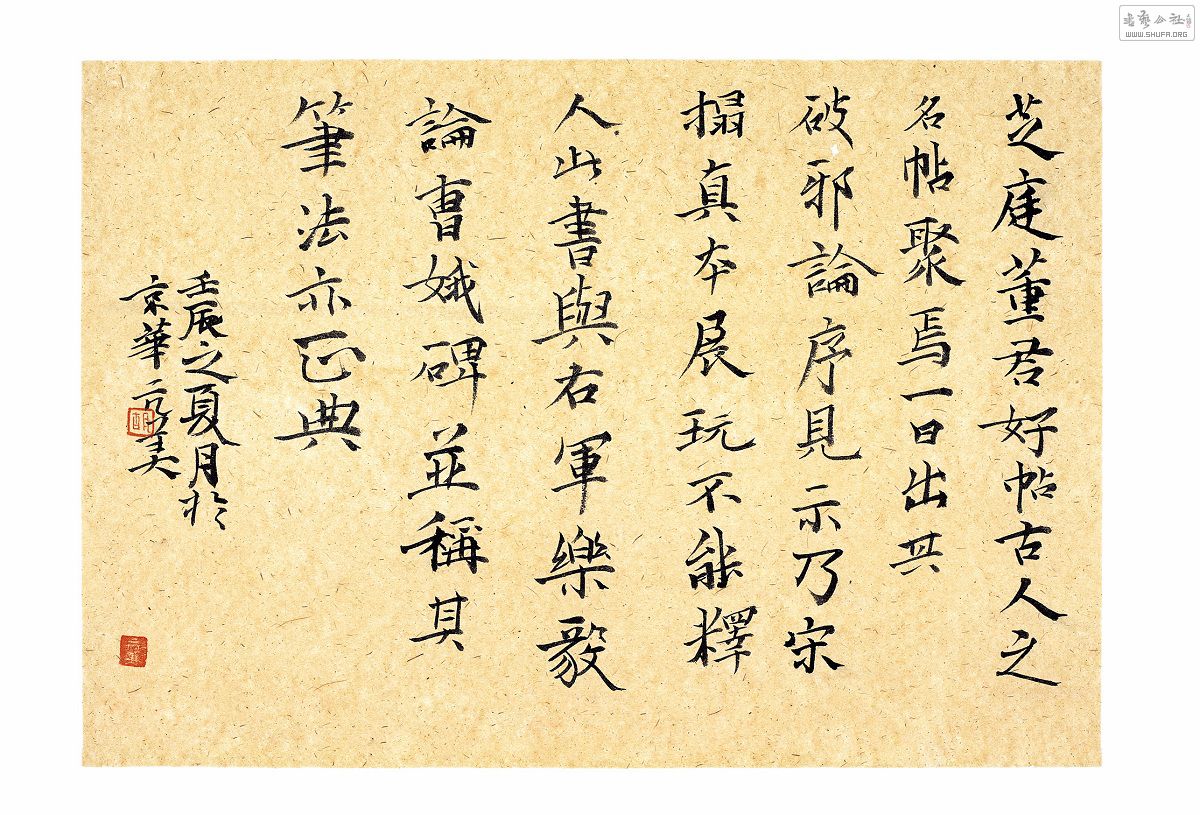 芝庭董君好帖古人之
名帖聚焉一日出其
破邪論序見示乃宋
搨真本展玩不能釋
人此書與右軍樂毅
論曹娥碑並稱其
筆法亦正典
壬辰之夏月於
京華
WWW.SHUFA.ORG